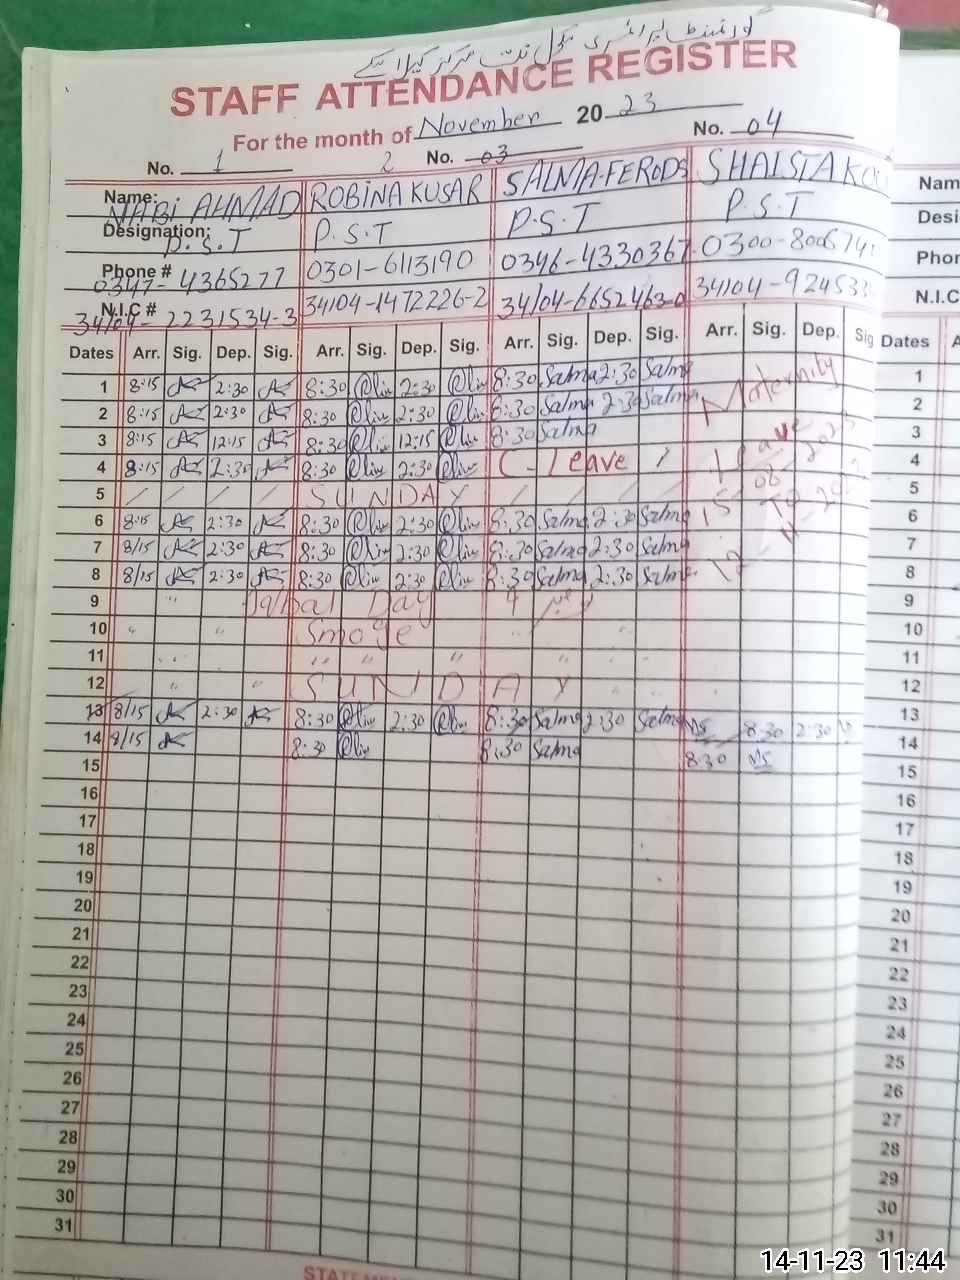 گورنمنٹ پرائمری سکول
STAFF ATTENDANCE REGISTER
For the month of November 2023
No. 1 2 No. 03 No. 04
Name: NABI AHMAD ROBINA KUSAR SALMA-FERODS SHAISTA Nam
Designation: P.S.T P.S.T P.S.T P.S.T Desi
Phone # 0347-4365277 0301-6113190 0346-4330367 0300-8006 Phor
N.I.C # 34104-2231534-3 34104-1472226-2 34104-6652463-0 34104-92453 N.I.C
Dates Arr. Sig. Dep. Sig. Arr. Sig. Dep. Sig. Arr. Sig. Dep. Sig. Arr. Sig. Dep. Sig Dates A
1 8:15 2:30 8:30 2:30 8:30 Salma 2:30 Salma Maternity 1
2 8:15 2:30 8:30 2:30 8:30 Salma 2:30 Salma 2
3 8:15 12:15 8:30 12:15 8:30 Salma Leave 3
4 8:15 2:30 8:30 2:30 C-Leave 4
5 / / / / SUNDAY / / / / 15-08-2023 5
6 8:15 2:30 8:30 2:30 8:30 Salma 2:30 Salma To 6
7 8/15 2:30 8:30 2:30 8:30 Salma 2:30 Salma 7
8 8/15 2:30 8:30 2:30 8:30 Salma 2:30 Salma 12 8
9 " Iqbal Day 9
10 " " Smoge " " 10
11 " " " " " " 11
12 " " SUNDAY " " 12
13 8/15 2:30 8:30 2:30 8:30 Salma 2:30 Salma 8:30 2:30 13
14 8/15 8:30 8:30 Salma 8:30 14
15 15
16 16
17 17
18 18
19 19
20 20
21 21
22 22
23 23
24 24
25 25
26 26
27 27
28 28
29 29
30 30
31 31
STATEME
14-11-23 11:44